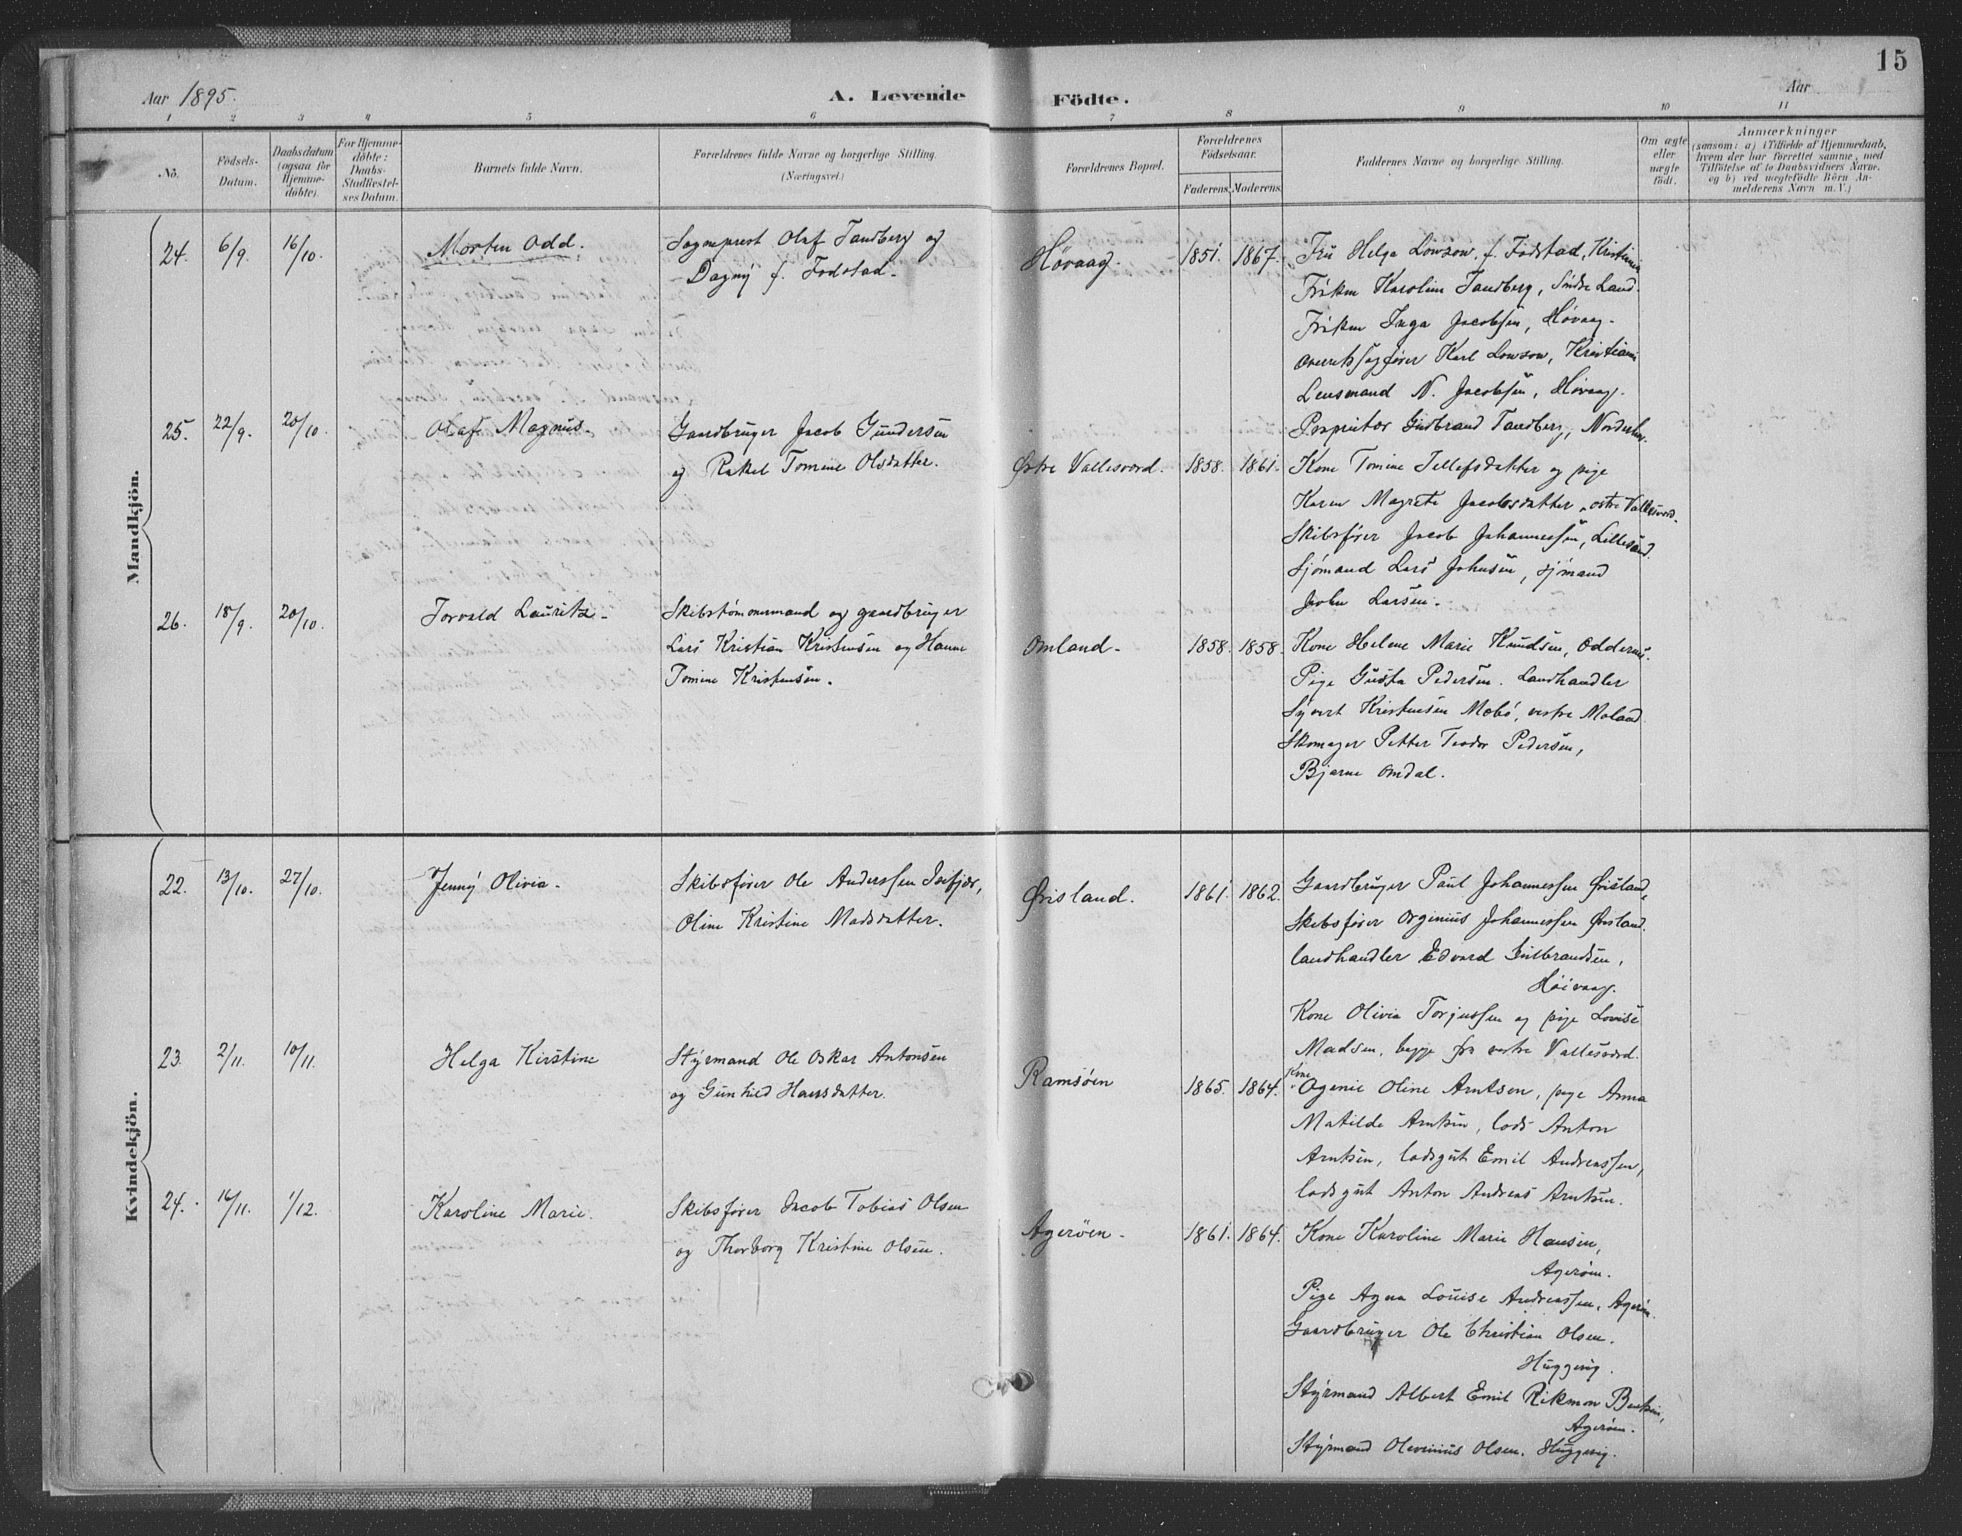 15
Aar 1895.
A. Levende Födte.
Aar
1 2 3 4 5 6 7 8 9 10 11
No.
Födsels-Datum.
Daabsdatum (ogsaa for Hjemmedöbte).
For Hjemmedöbte: Daabs-Stadfæstelses Datum.
Barnets fulde Navn.
Forældrenes fulde Navne og borgerlige Stilling.
(Næringsvei.)
Forældrenes Bopæl.
Forældrenes Födselsaar.
Faderens. Moderens.
Faddernes Navne og borgerlige Stilling.
Om ægte eller uægte födt.
Anmærkninger
(saasom: a) i Tilfælde af Hjemmedaab, hvem der har forrettet samme, med Tilföielse af to Daabsvidners Navne, og b) ved uægtefödte Börn Anmelderens Navn m. V.)
Mandkjön.
24. 6/9. 16/10. Morten Odd.
Sogneprest Olaf Tandberg og
Dagny f. Fodstad.
Høvaag. 1851. 1867.
Fru Helga Lowzow, f. Fodstad, Kristiania
Frøken Karoline Tandberg, Søndre Land.
Frøken Inga Jacobsen, Høvaag.
Overretssagfører Karl Lowzow, Kristiania
Lensmand N. Jacobsen, Høvaag.
Proprietær Gudbrand Tandberg, Norderhov.
25. 22/9. 20/10. Olaf Magnus.
Gaardbruger Jacob Gundersen
og Rakel Tomine Olsdatter.
Østre Vallesværd. 1858. 1861.
Kone Tomine Tellefsdatter og pige
Karen Magrete Jacobsdatter, østre Vallesværd.
Skibsfører Jacob Johannessen, Lillesand.
Sjømand Lars Johnsen, sjømand
John Larsen.
26. 18/9. 20/10. Torvald Lauritz.
Skibstømmermand og gaardbruger
Lars Kristian Kristensen og Hanne
Tomine Kristensen.
Omland. 1858. 1858.
Kone Helene Marie Knudsen, Oddernes.
Pige Gusta Pedersen. Landhandler
Syvert Kristensen Mæbø, vestre Moland
Skomager Petter Teodor Pedersen,
Bjarne Omdal.
Kvindekjön.
22. 13/10. 27/10. Jenny Olivia.
Skibsfører Ole Anderssen Isefjær,
Oline Kristine Madsdatter.
Øvisland. 1861. 1862.
Gaardbruger Paul Johannessen Øvisland,
Skibsfører Orgenius Johannessen Øvisland.
landhandler Edvard Gulbrandsen,
Høivaag.
Kone Olivia Torjussen og pige Lovise
Madsen, begge fra vestre Vallesværd.
23. 2/11. 10/11. Helga Kirstine
Styrmand Ole Oskar Antonsen
og Gunhild Hansdatter.
Ramsøen 1865. 1864.
Kone Ogenie Oline Arntsen, pige Anna
Matilde Arntsen, lods Anton
Arntsen, lodsgut Emil Andreassen,
lodsgut Anton Andreas Arntsen.
24. 14/11. 1/12. Karoline Marie.
Skibsfører Jacob Tobias Olsen
og Thorborg Kristine Olsen.
Agerøen. 1861. 1864.
Kone Karoline Marie Hansen,
Agerøen.
Pige Agna Louise Andreassen, Agerøen.
Gaardbruger Ole Christian Olsen.
Huggevig.
Styrmand Albert Emil Rikman
Agerøen.
Styrmand Olevinius Olsen. Huggevig.